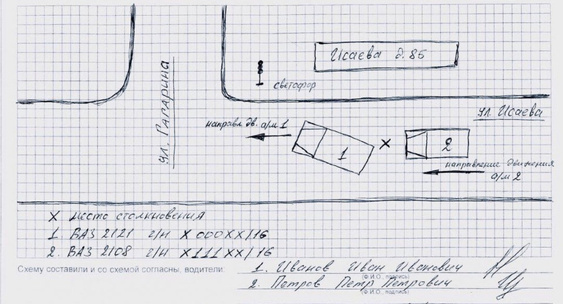 Исаева д. 85
светофор
ул. Исаева
ул. Гагарина
направл. дв. а/м 1
1
X
2
направление движения
а/м 2
X место столкновения
1. ВАЗ 2121 г/н X 000 XX/16
2. ВАЗ 2108 г/н X 111 XX/16
Схему составили и со схемой согласны, водители:
1. Иванов Иван Иванович
(Ф.И.О., подпись)
2. Петров Петр Петрович
(Ф.И.О., подпись)